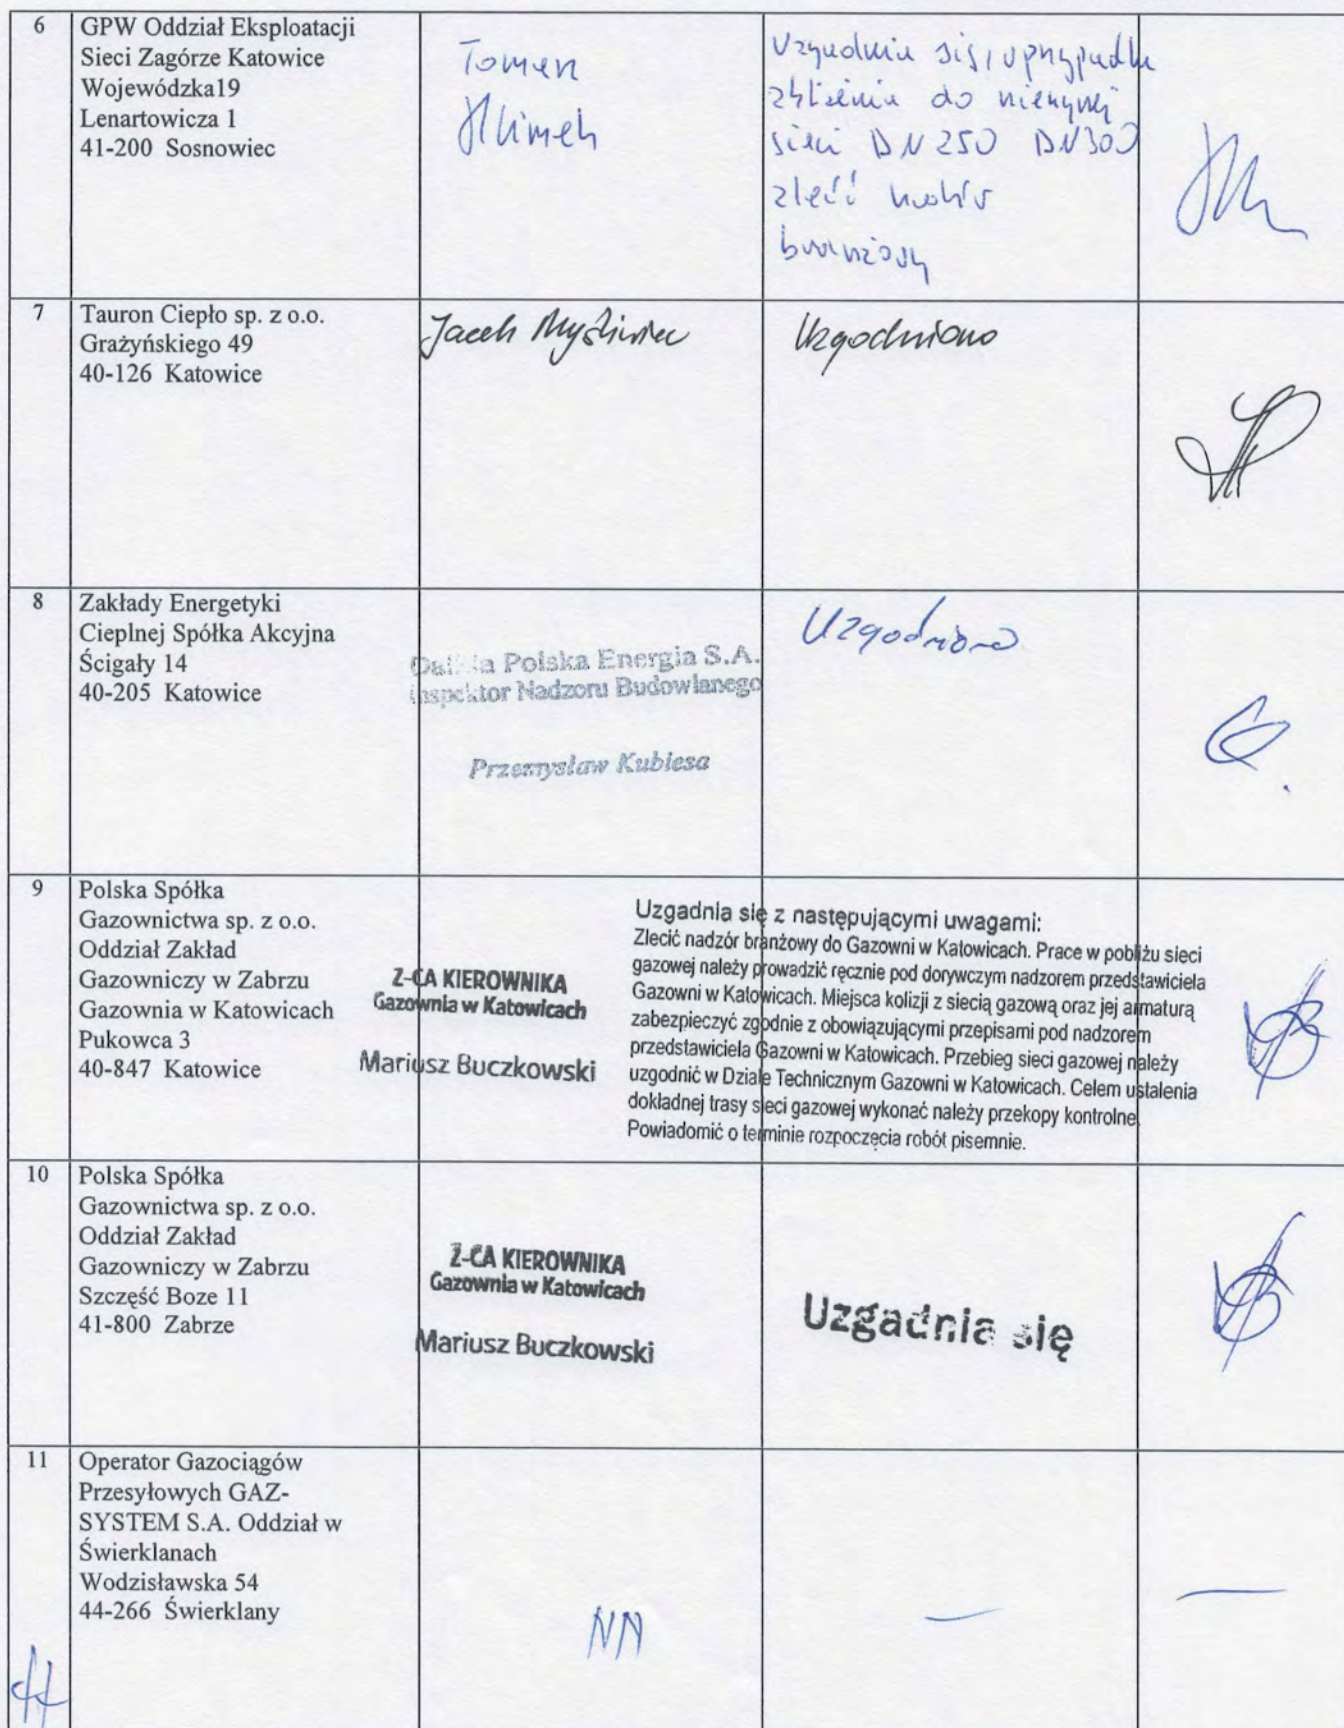 6
GPW Oddział Eksploatacji
Sieci Zagórze Katowice
Wojewódzka19
Lenartowicza 1
41-200 Sosnowiec
Tomek
Klimek
Uzgadnia się, w przypadku
zbliżenia do
sieci DN250 DN300
zlecić nadzór
branżowy
7
Tauron Ciepło sp. z o.o.
Grażyńskiego 49
40-126 Katowice
Jacek Myśliwiec
Uzgodniono
8
Zakłady Energetyki
Cieplnej Spółka Akcyjna
Ścigały 14
40-205 Katowice
Dalkia Polska Energia S.A.
Inspektor Nadzoru Budowlanego
Przemysław Kubiesa
Uzgodniono
9
Polska Spółka
Gazownictwa sp. z o.o.
Oddział Zakład
Gazowniczy w Zabrzu
Gazownia w Katowicach
Pukowca 3
40-847 Katowice
Z-CA KIEROWNIKA
Gazownia w Katowicach
Mariusz Buczkowski
Uzgadnia się z następującymi uwagami:
Zlecić nadzór branżowy do Gazowni w Katowicach. Prace w pobliżu sieci
gazowej należy prowadzić ręcznie pod dorywczym nadzorem przedstawiciela
Gazowni w Katowicach. Miejsca kolizji z siecią gazową oraz jej armaturą
zabezpieczyć zgodnie z obowiązującymi przepisami pod nadzorem
przedstawiciela Gazowni w Katowicach. Przebieg sieci gazowej należy
uzgodnić w Dziale Technicznym Gazowni w Katowicach. Celem ustalenia
dokładnej trasy sieci gazowej wykonać należy przekopy kontrolne.
Powiadomić o terminie rozpoczęcia robót pisemnie.
10
Polska Spółka
Gazownictwa sp. z o.o.
Oddział Zakład
Gazowniczy w Zabrzu
Szczęść Boze 11
41-800 Zabrze
Z-CA KIEROWNIKA
Gazownia w Katowicach
Mariusz Buczkowski
Uzgadnia się
11
Operator Gazociągów
Przesyłowych GAZ-
SYSTEM S.A. Oddział w
Świerklanach
Wodzisławska 54
44-266 Świerklany
NN